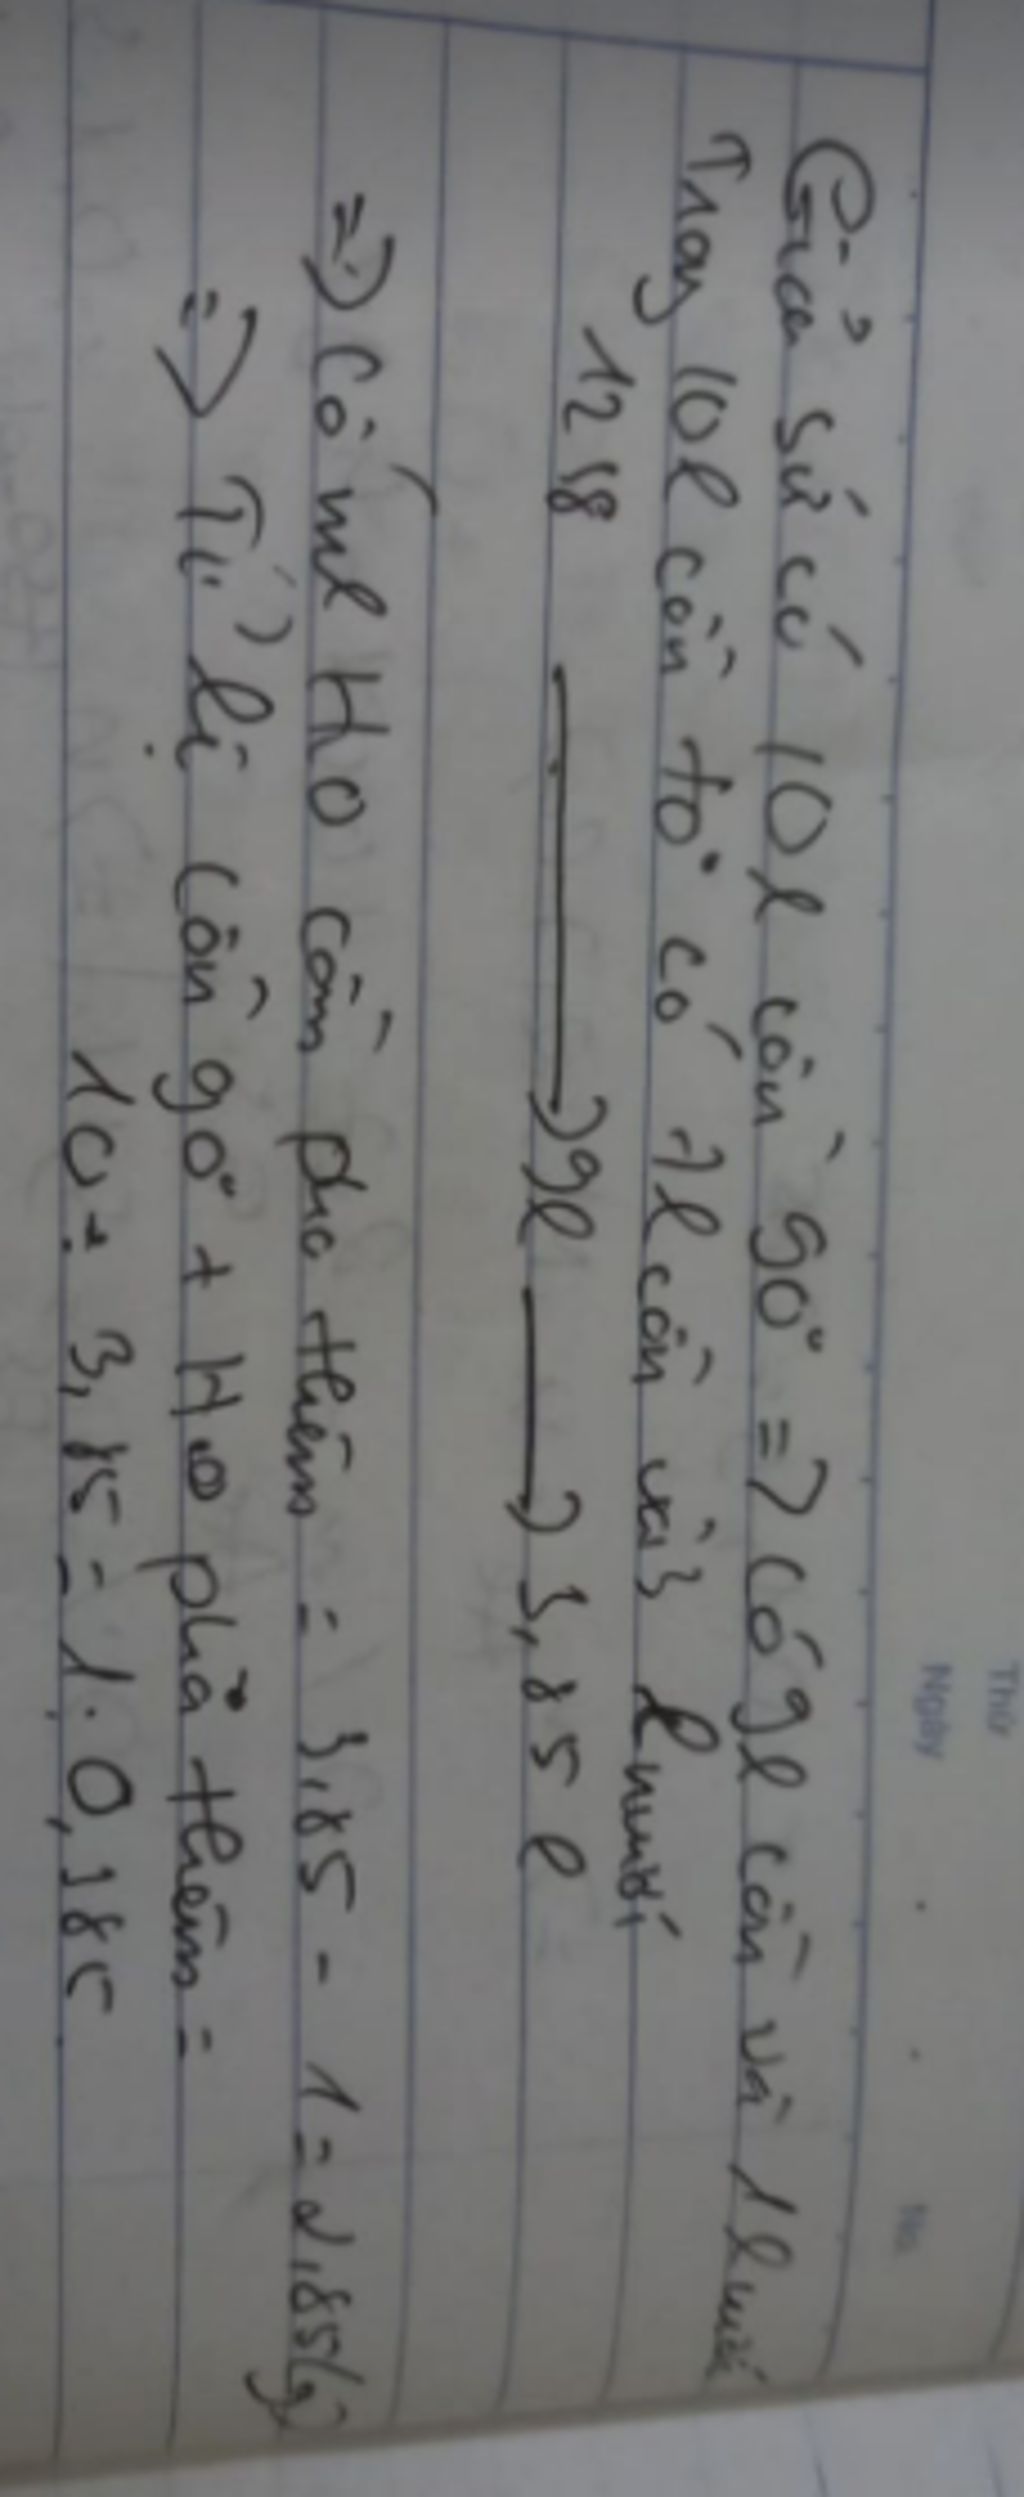 Thứ
Ngày
No.
Giả sử có 10l cồn 90° => có 9l cồn và 1l nước
Trong 10l cồn 70° có 7l cồn và 3 l nước
12,8 → 9l → 3,85 l
=> Có ml H2O cần pha thêm = 3,85 - 1 = 2,85(g)
=> Tỉ lệ cồn 90° + H2O phả thêm =
10 : 3,85 = 1 : 0,385